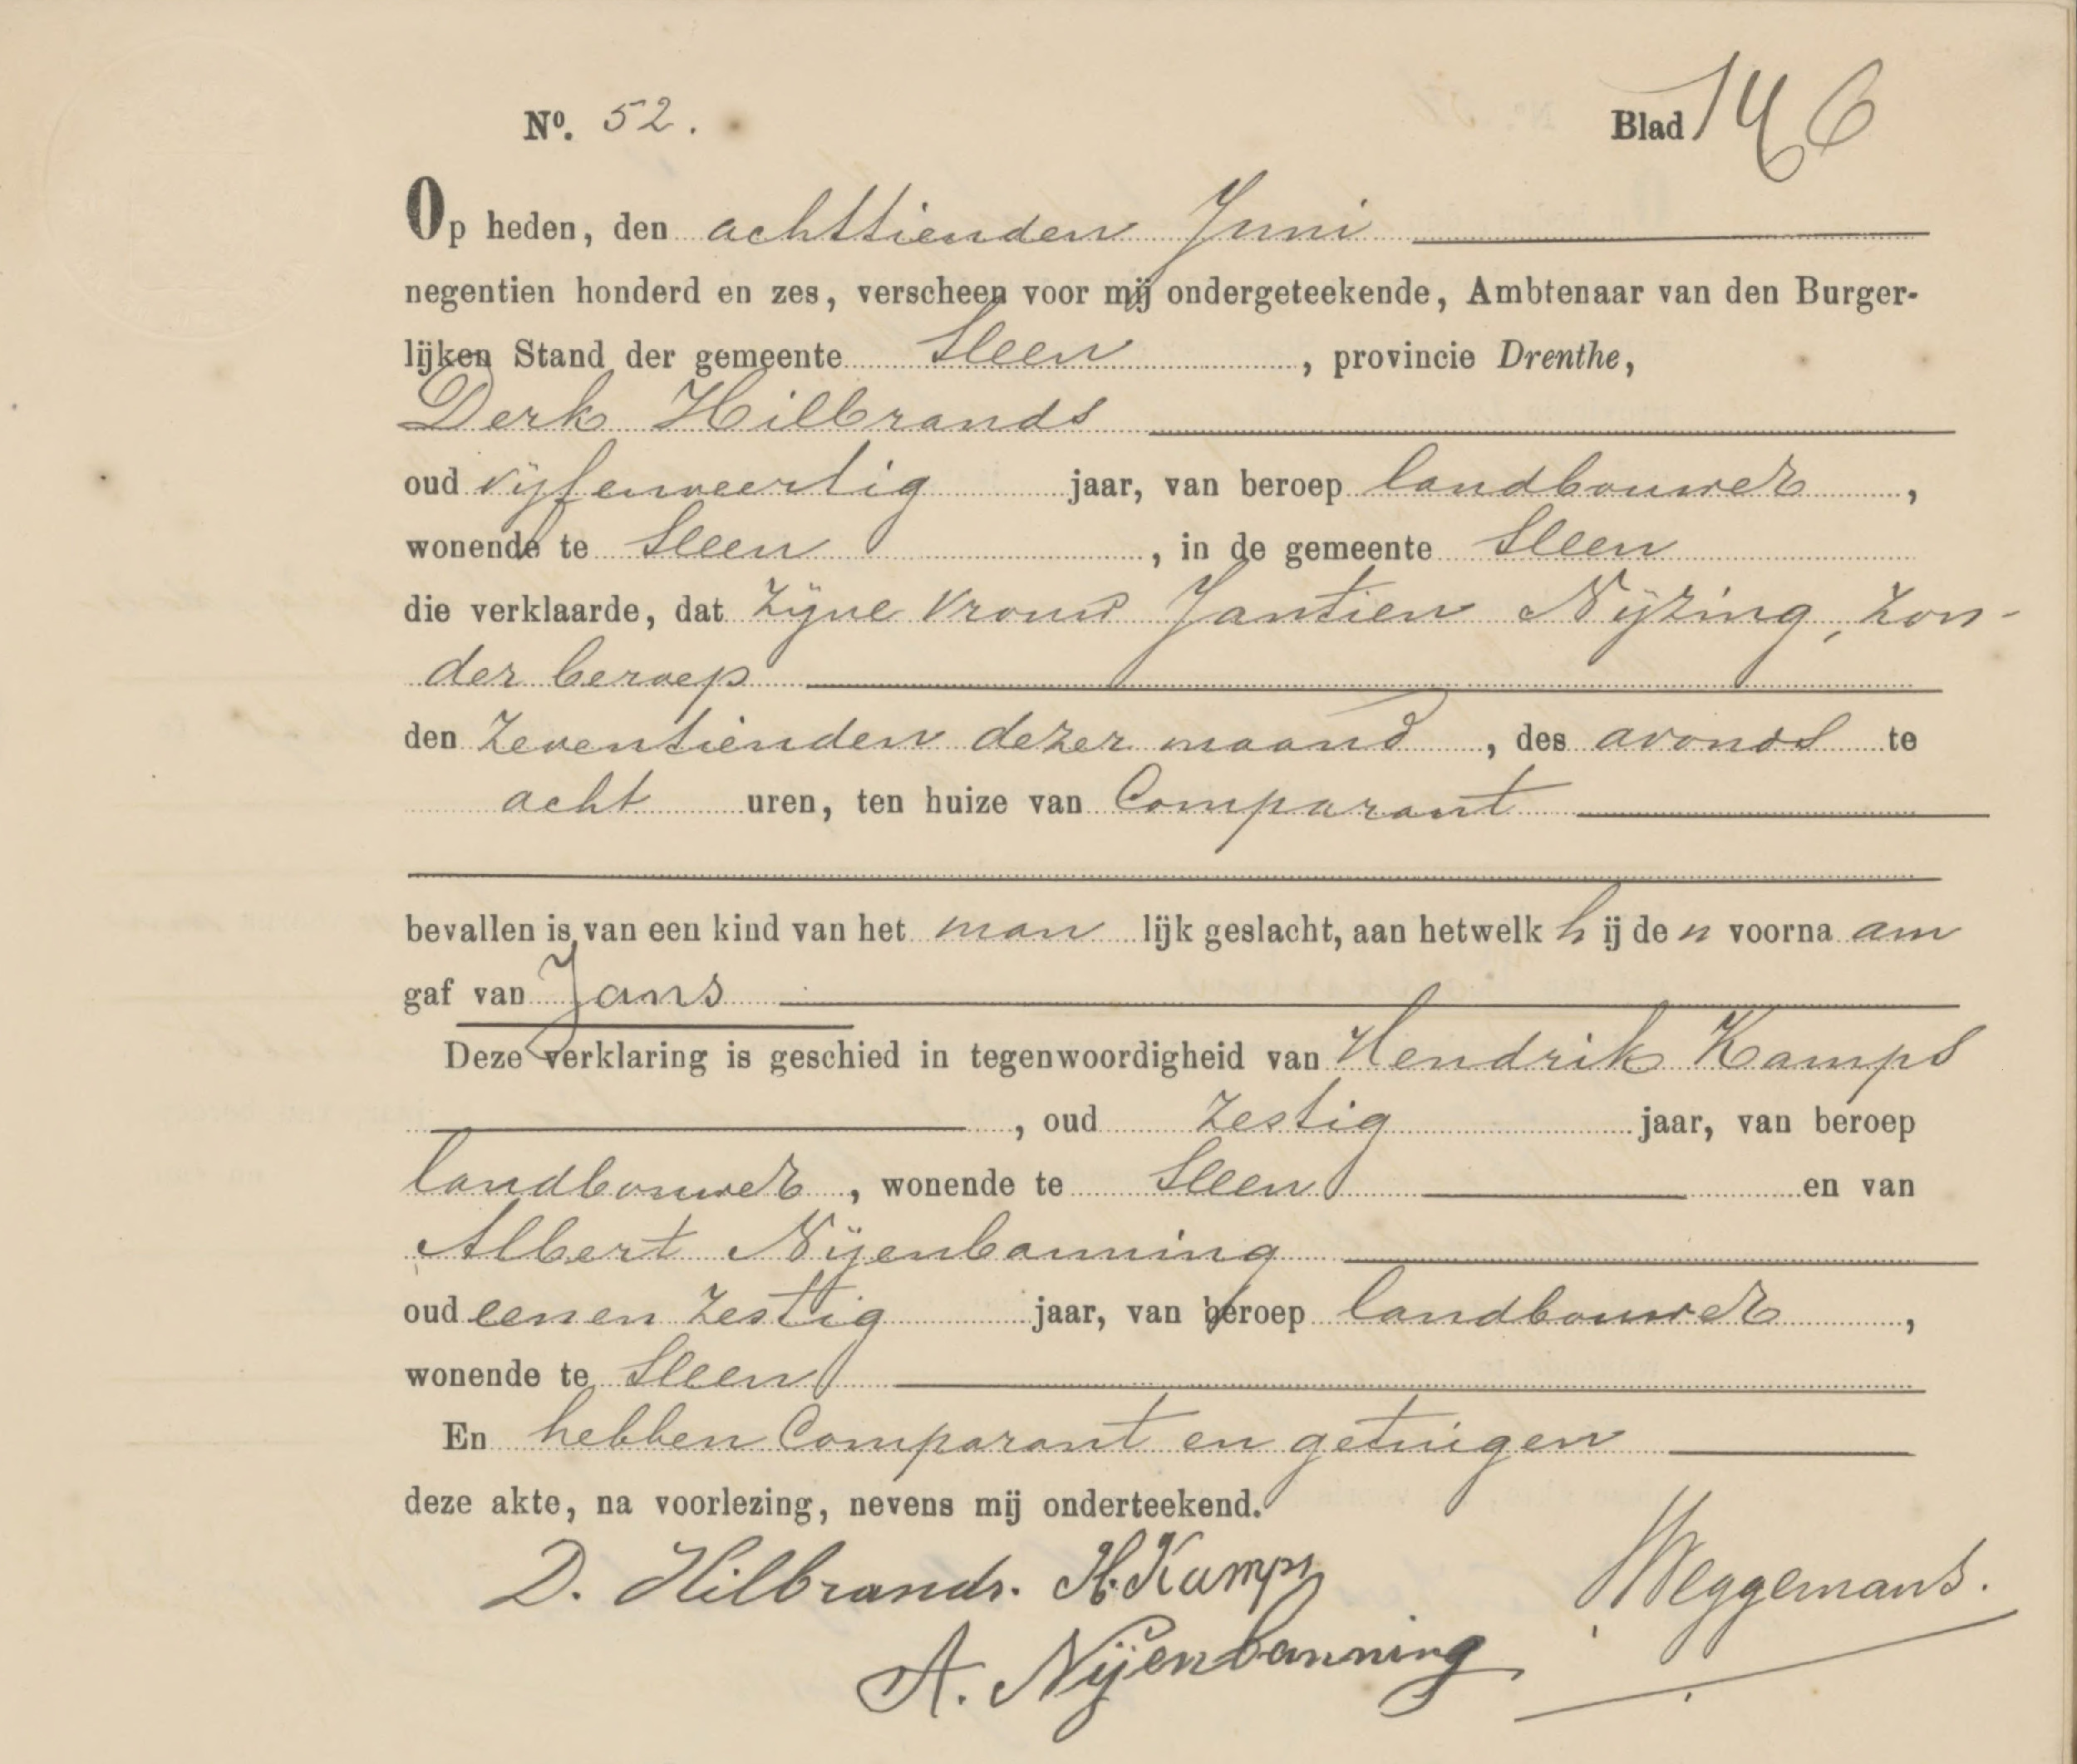 Nº. 52.
Blad 146
Op heden, den achttienden Juni
negentien honderd en zes, verscheen voor mij ondergeteekende, Ambtenaar van den Burger-
lijken Stand der gemeente Sleen, provincie Drenthe,
Derk Hilbrands
oud vijfenveertig jaar, van beroep landbouwer,
wonende te Sleen, in de gemeente Sleen
die verklaarde, dat zijne vrouw Jantien Nijzing, zon-
der beroep
den zeventienden dezer maand, des avonds te
acht uren, ten huize van Comparant
bevallen is van een kind van het man lijk geslacht, aan hetwelk h ij de n voorna am
gaf van Jans
Deze verklaring is geschied in tegenwoordigheid van Hendrik Kamps
, oud zestig jaar, van beroep
landbouwer, wonende te Sleen en van
Albert Nijenbanning
oud eenen zestig jaar, van beroep landbouwer,
wonende te Sleen
En hebben Comparant en getuigen
deze akte, na voorlezing, nevens mij onderteekend.
D. Hilbrands. H. Kamps
Weggemans.
A. Nijenbanning